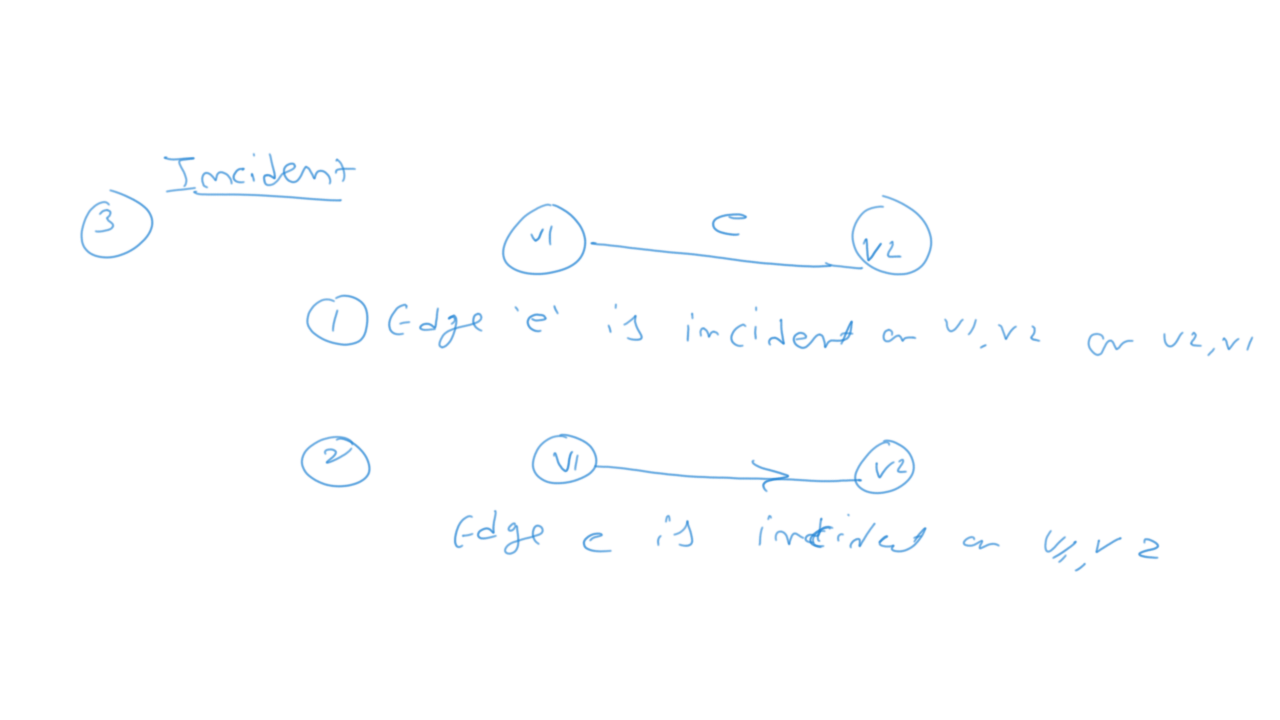 Incident
3
v1 e v2
1 Edge 'e' is incident on v1, v2 or v2, v1
2 V1 v2
Edge e is incident on V1, v2